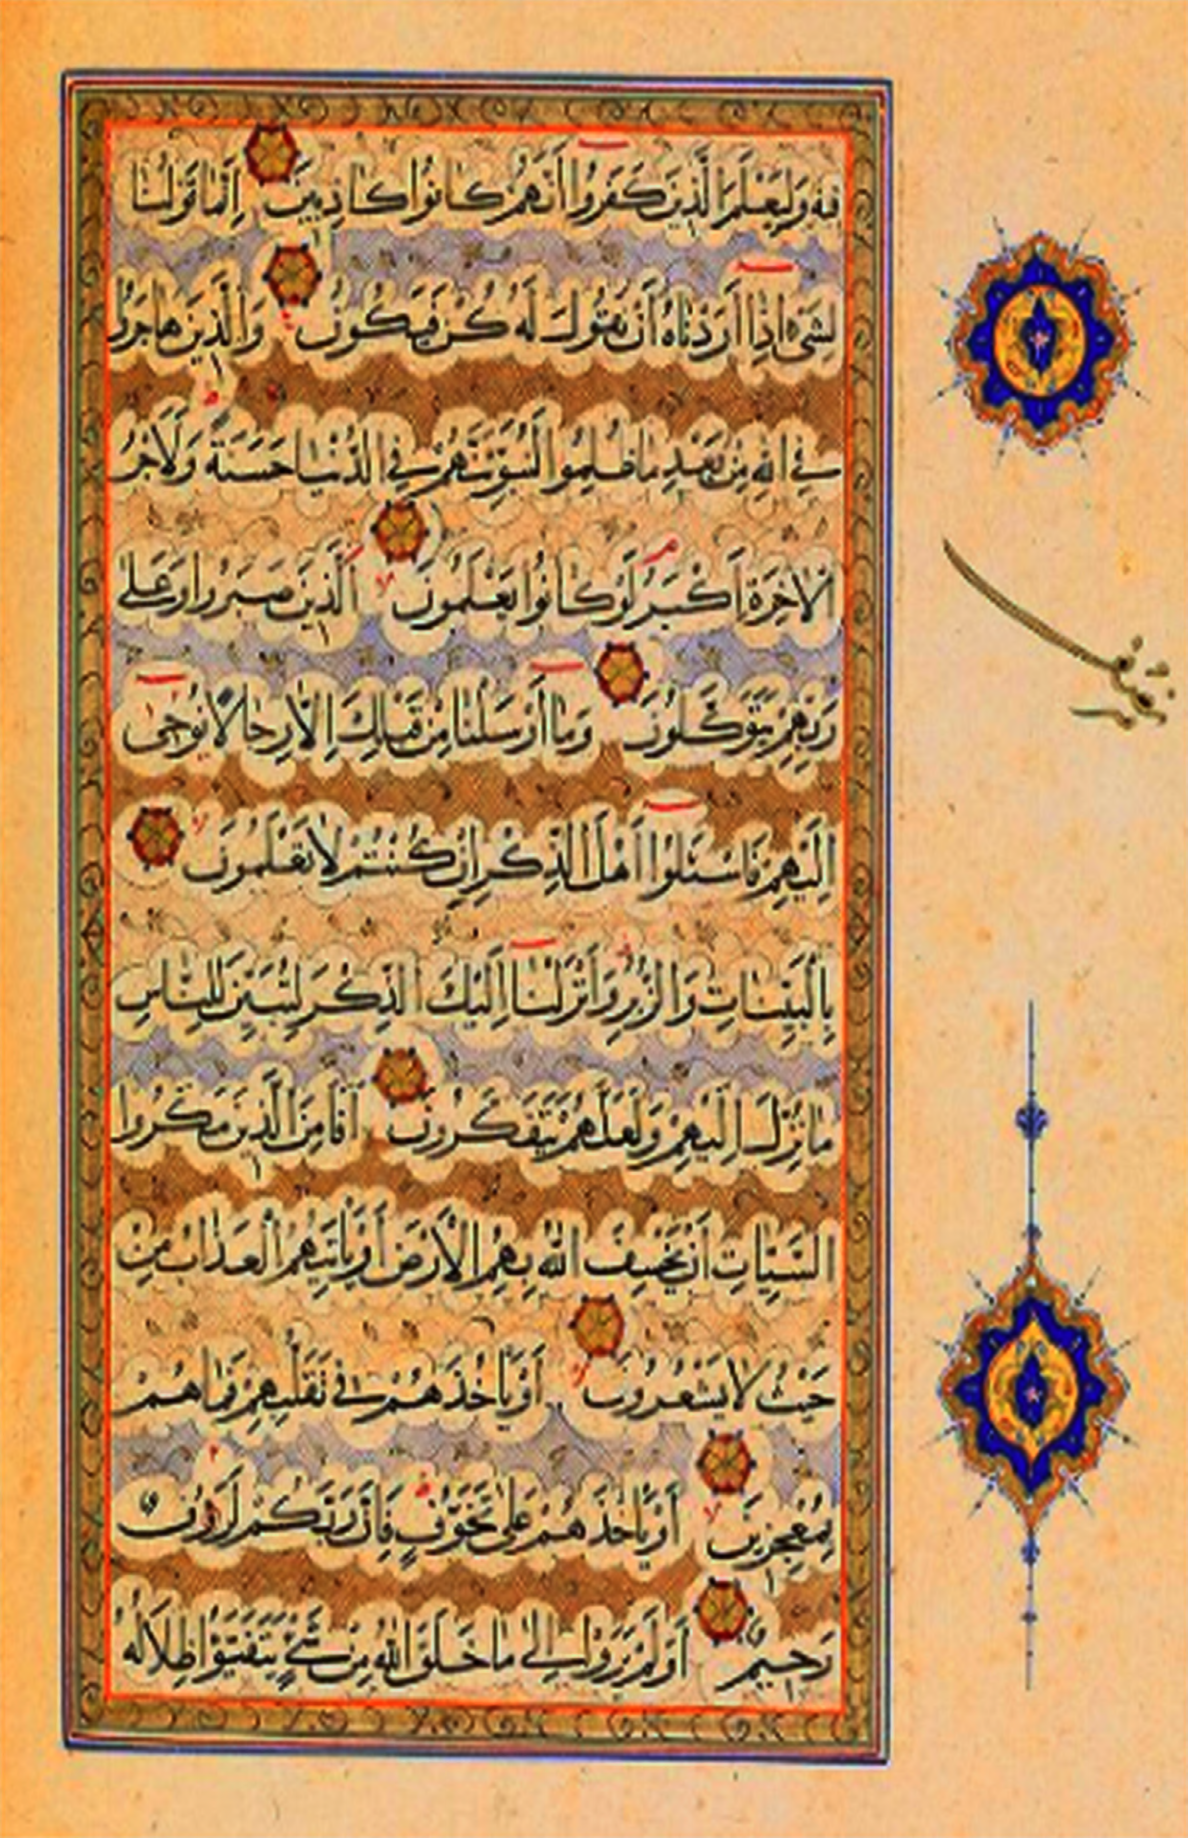 فيه وليعلم الذين كفروا أنهم كانوا كاذبين إنما قولنا
لشيء إذا أردناه أن نقول له كن فيكون والذين هاجروا
في الله من بعد ما ظلموا لنبوئنهم في الدنيا حسنة ولأجر
الآخرة أكبر لو كانوا يعلمون الذين صبروا وعلى
ربهم يتوكلون وما أرسلنا من قبلك إلا رجالا نوحي
إليهم فاسئلوا أهل الذكر إن كنتم لا تعلمون
بالبينات والزبر وأنزلنا إليك الذكر لتبين للناس
ما نزل إليهم ولعلهم يتفكرون أفأمن الذين مكروا
السيئات أن يخسف الله بهم الأرض أو يأتيهم العذاب من
حيث لا يشعرون أو يأخذهم في تقلبهم فما هم
بمعجزين أو يأخذهم على تخوف فإن ربكم لرؤوف
رحيم أولم يروا إلى ما خلق الله من شيء يتفيؤا ظلاله